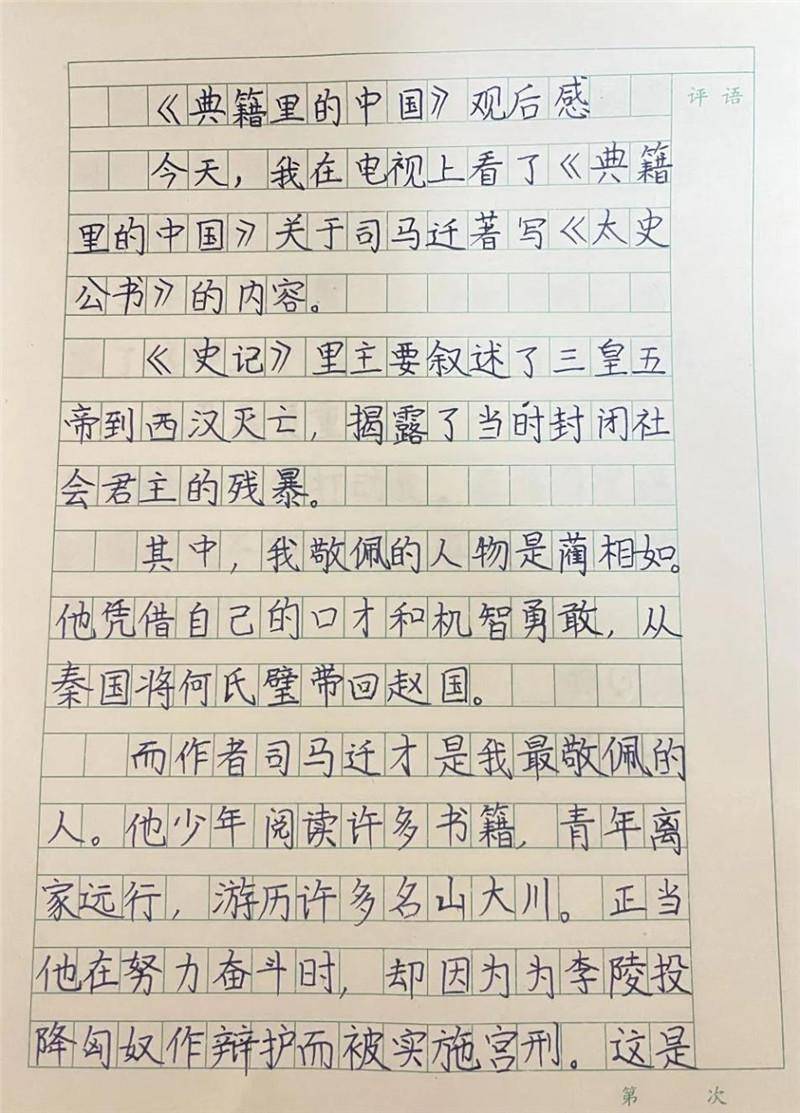 《典籍里的中国》观后感
评语
今天，我在电视上看了《典籍
里的中国》关于司马迁著写《太史
公书》的内容。
《史记》里主要叙述了三皇五
帝到西汉灭亡，揭露了当时封闭社
会君主的残暴。
其中，我敬佩的人物是蔺相如。
他凭借自己的口才和机智勇敢，从
秦国将何氏璧带回赵国。
而作者司马迁才是我最敬佩的
人。他少年阅读许多书籍，青年离
家远行，游历许多名山大川。正当
他在努力奋斗时，却因为为李陵投
降匈奴作辩护而被实施宫刑。这是
第 次